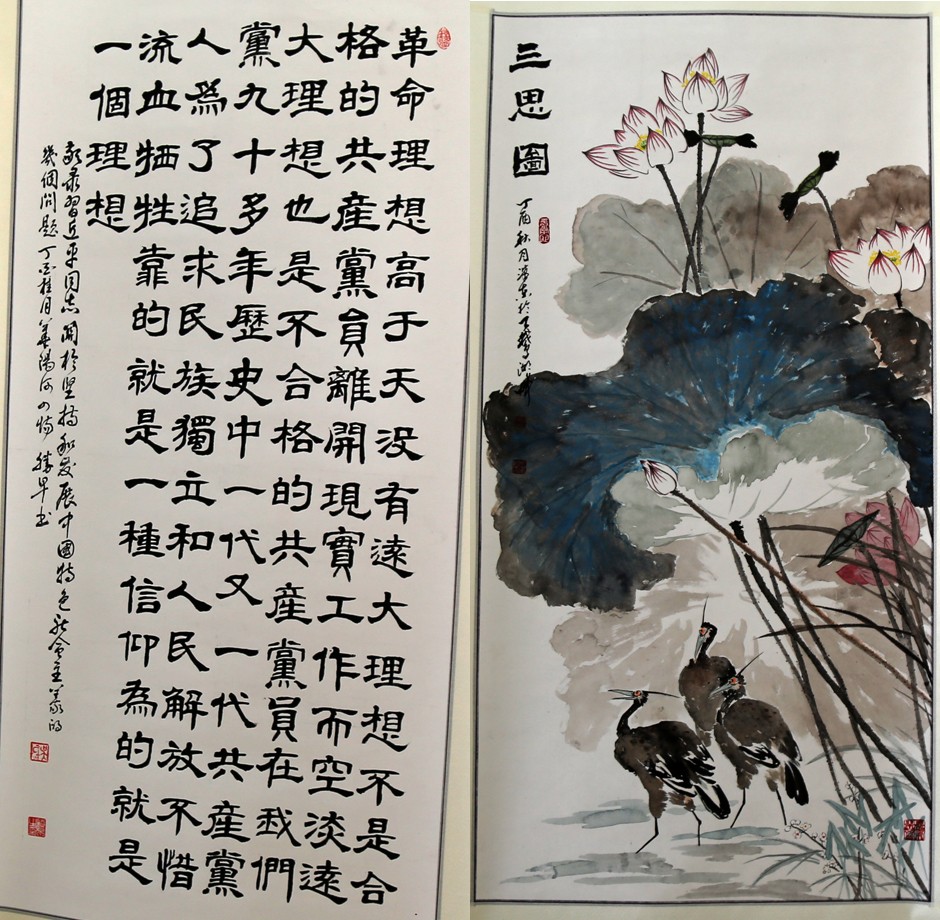 革命理想高于天没有遠大理想不是合
格的共產黨員離開現實工作而空淡遠
大理想也是不合格的共產黨員在我們
黨九十多年歷史中一代又一代共產黨
人爲了追求民族獨立和人民解放不惜
流血牺牲靠的就是一種信仰為的就是
一個理想
敬录習近平同志關於坚持和发展中國特色社會主義的
幾個問題丁酉桂月華陽河
三思圖
丁酉秋月 於天鵝湖畔